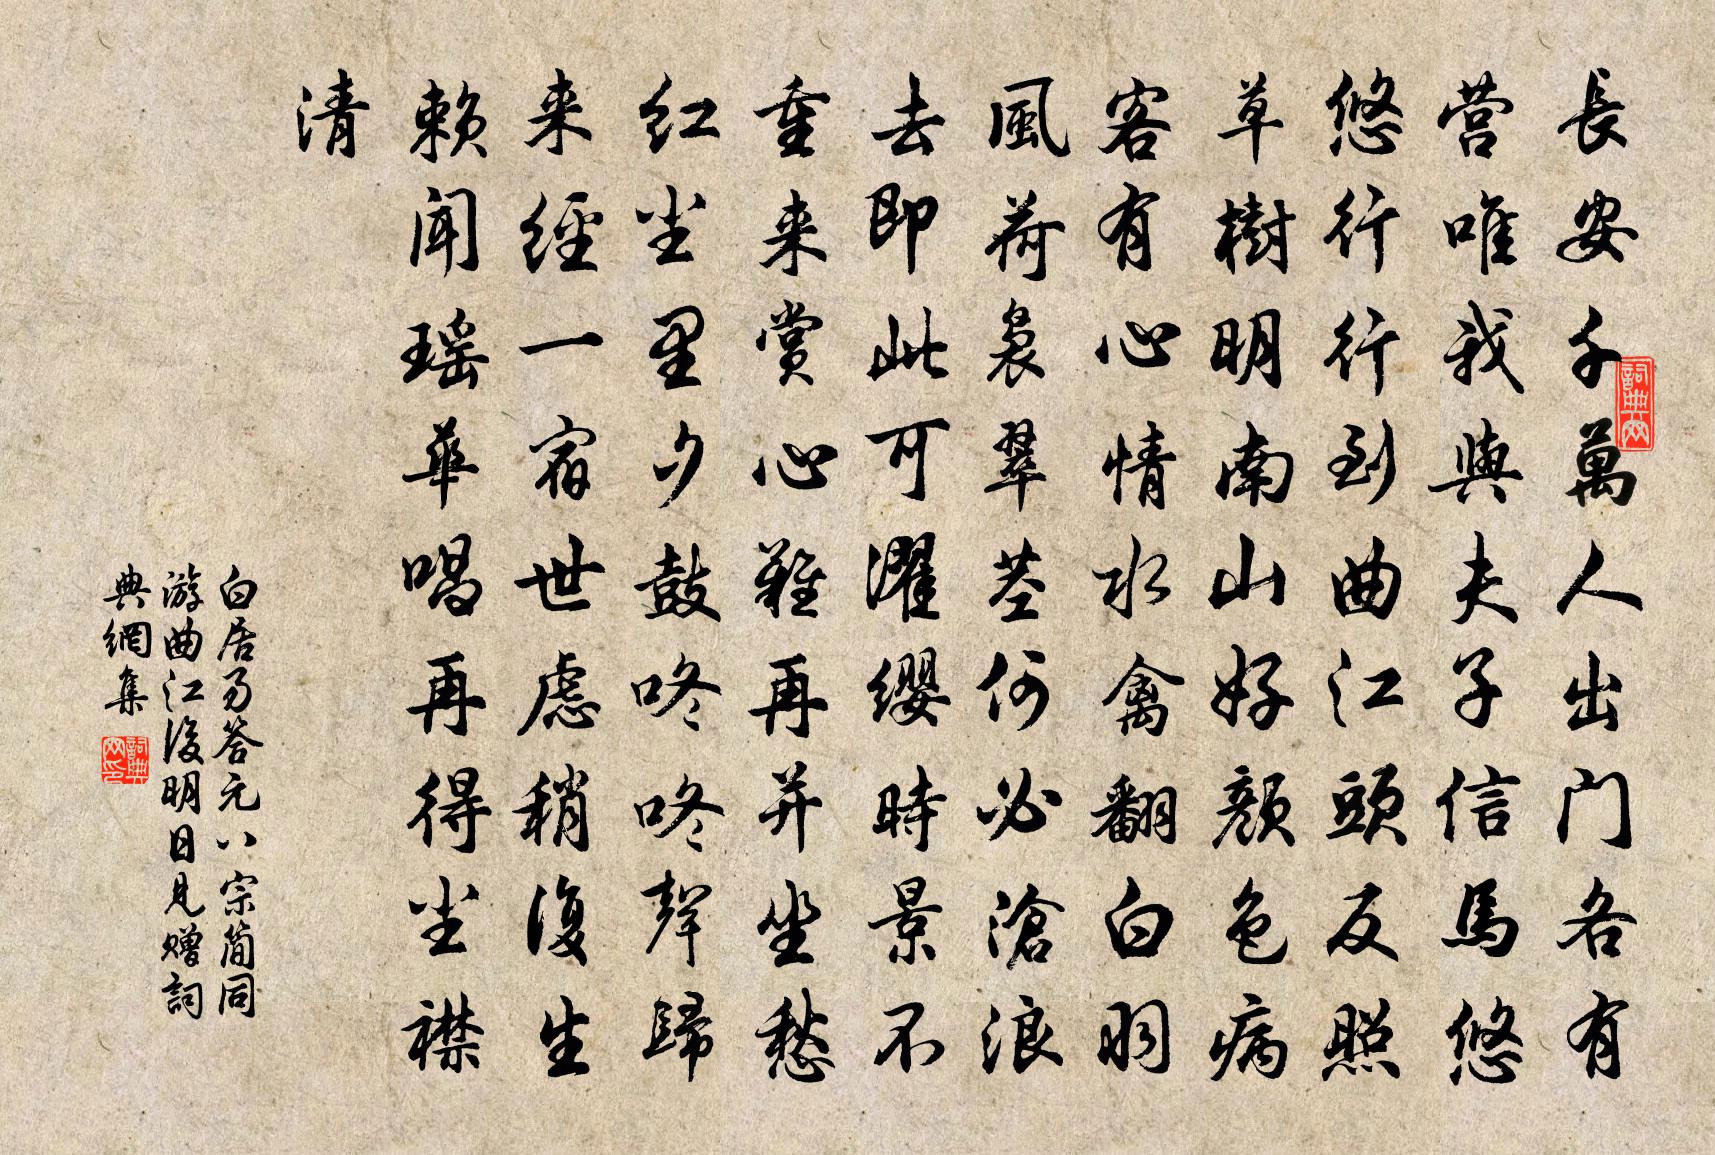 長安千萬人出门各有
营唯我與夫子信馬悠
悠行行到曲江頭反照
草樹明南山好颜色病
客有心情水禽翻白羽
風荷裊翠茎何必滄浪
去即此可濯缨時景不
重来赏心難再并坐愁
红尘里夕鼓咚咚聲歸
来經一宿世慮稍復生
赖闻瑶華唱再得尘襟
清
白居易答元八宗简同
游曲江後明日見赠詞
典網集
詞典网
詞典网印